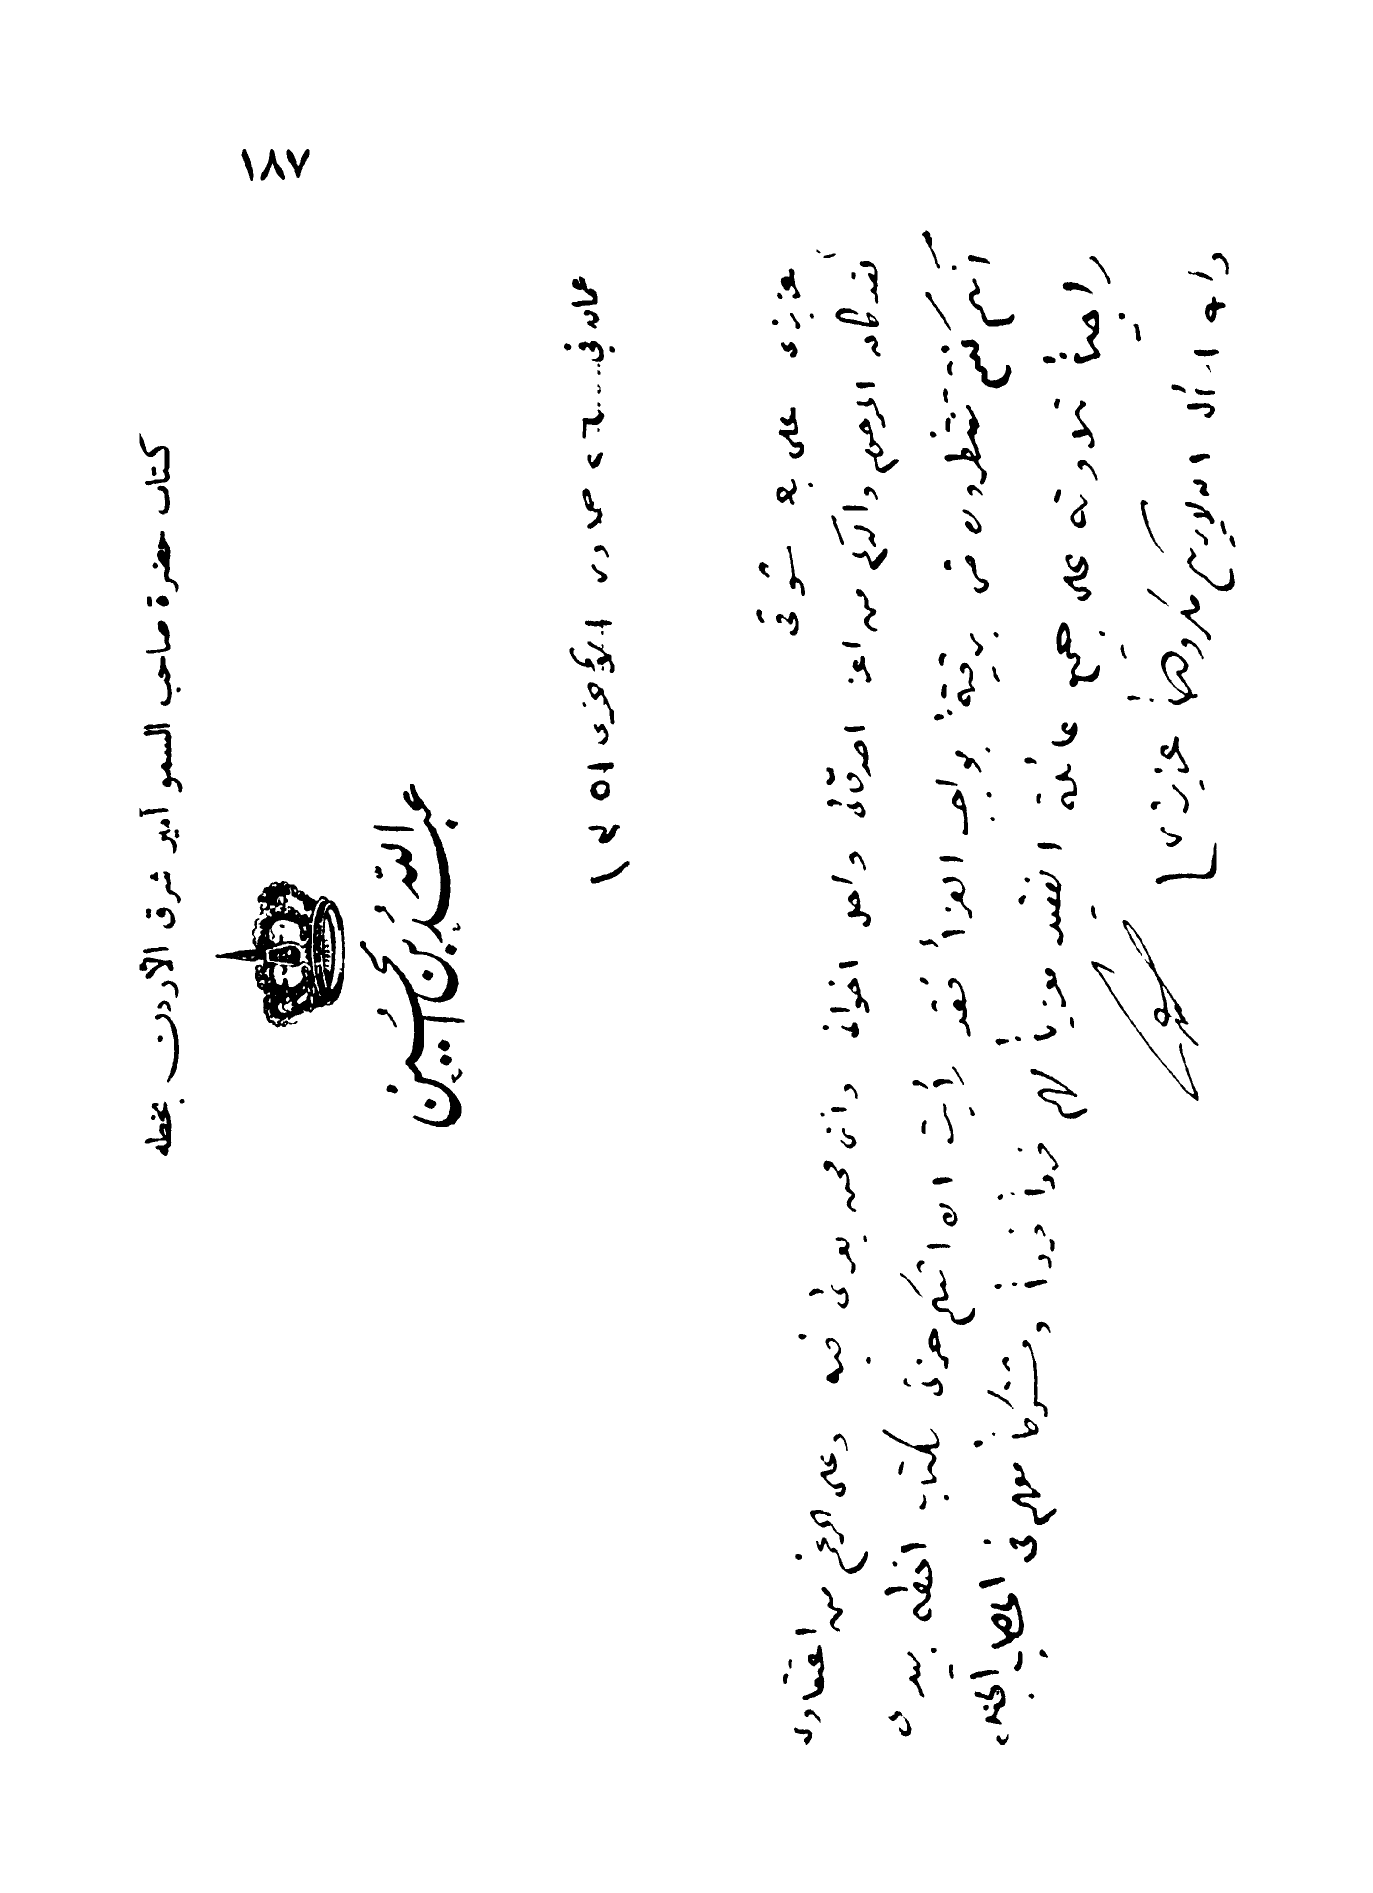 ١٨٧
كتاب حضرة صاحب السمو أمير شرق الأردن بخطه
عبد الله بن الحسين
عمان في ٢٦ جمادى الأخرى ١٣٥١
عزيزى على بك شوقى
لقد كان المرحوم والدكم من اعز اصدقائى واحب اخوانى وانى محق بعزائى فيه وعلى الرغم من اعتقادى
أنكم كنتم تنتظرون منى برقية بواجب العزاء فقد رأيت ان اشكركم حزنى بكتاب اخطه بيدى
راجياً تلاوته على جميع عائلة الفقيد معزياً لهم فرداً فرداً ومشتركاً معهم فى المصاب
والله أسأل ان لا يريكم مكروهاً عزيزى